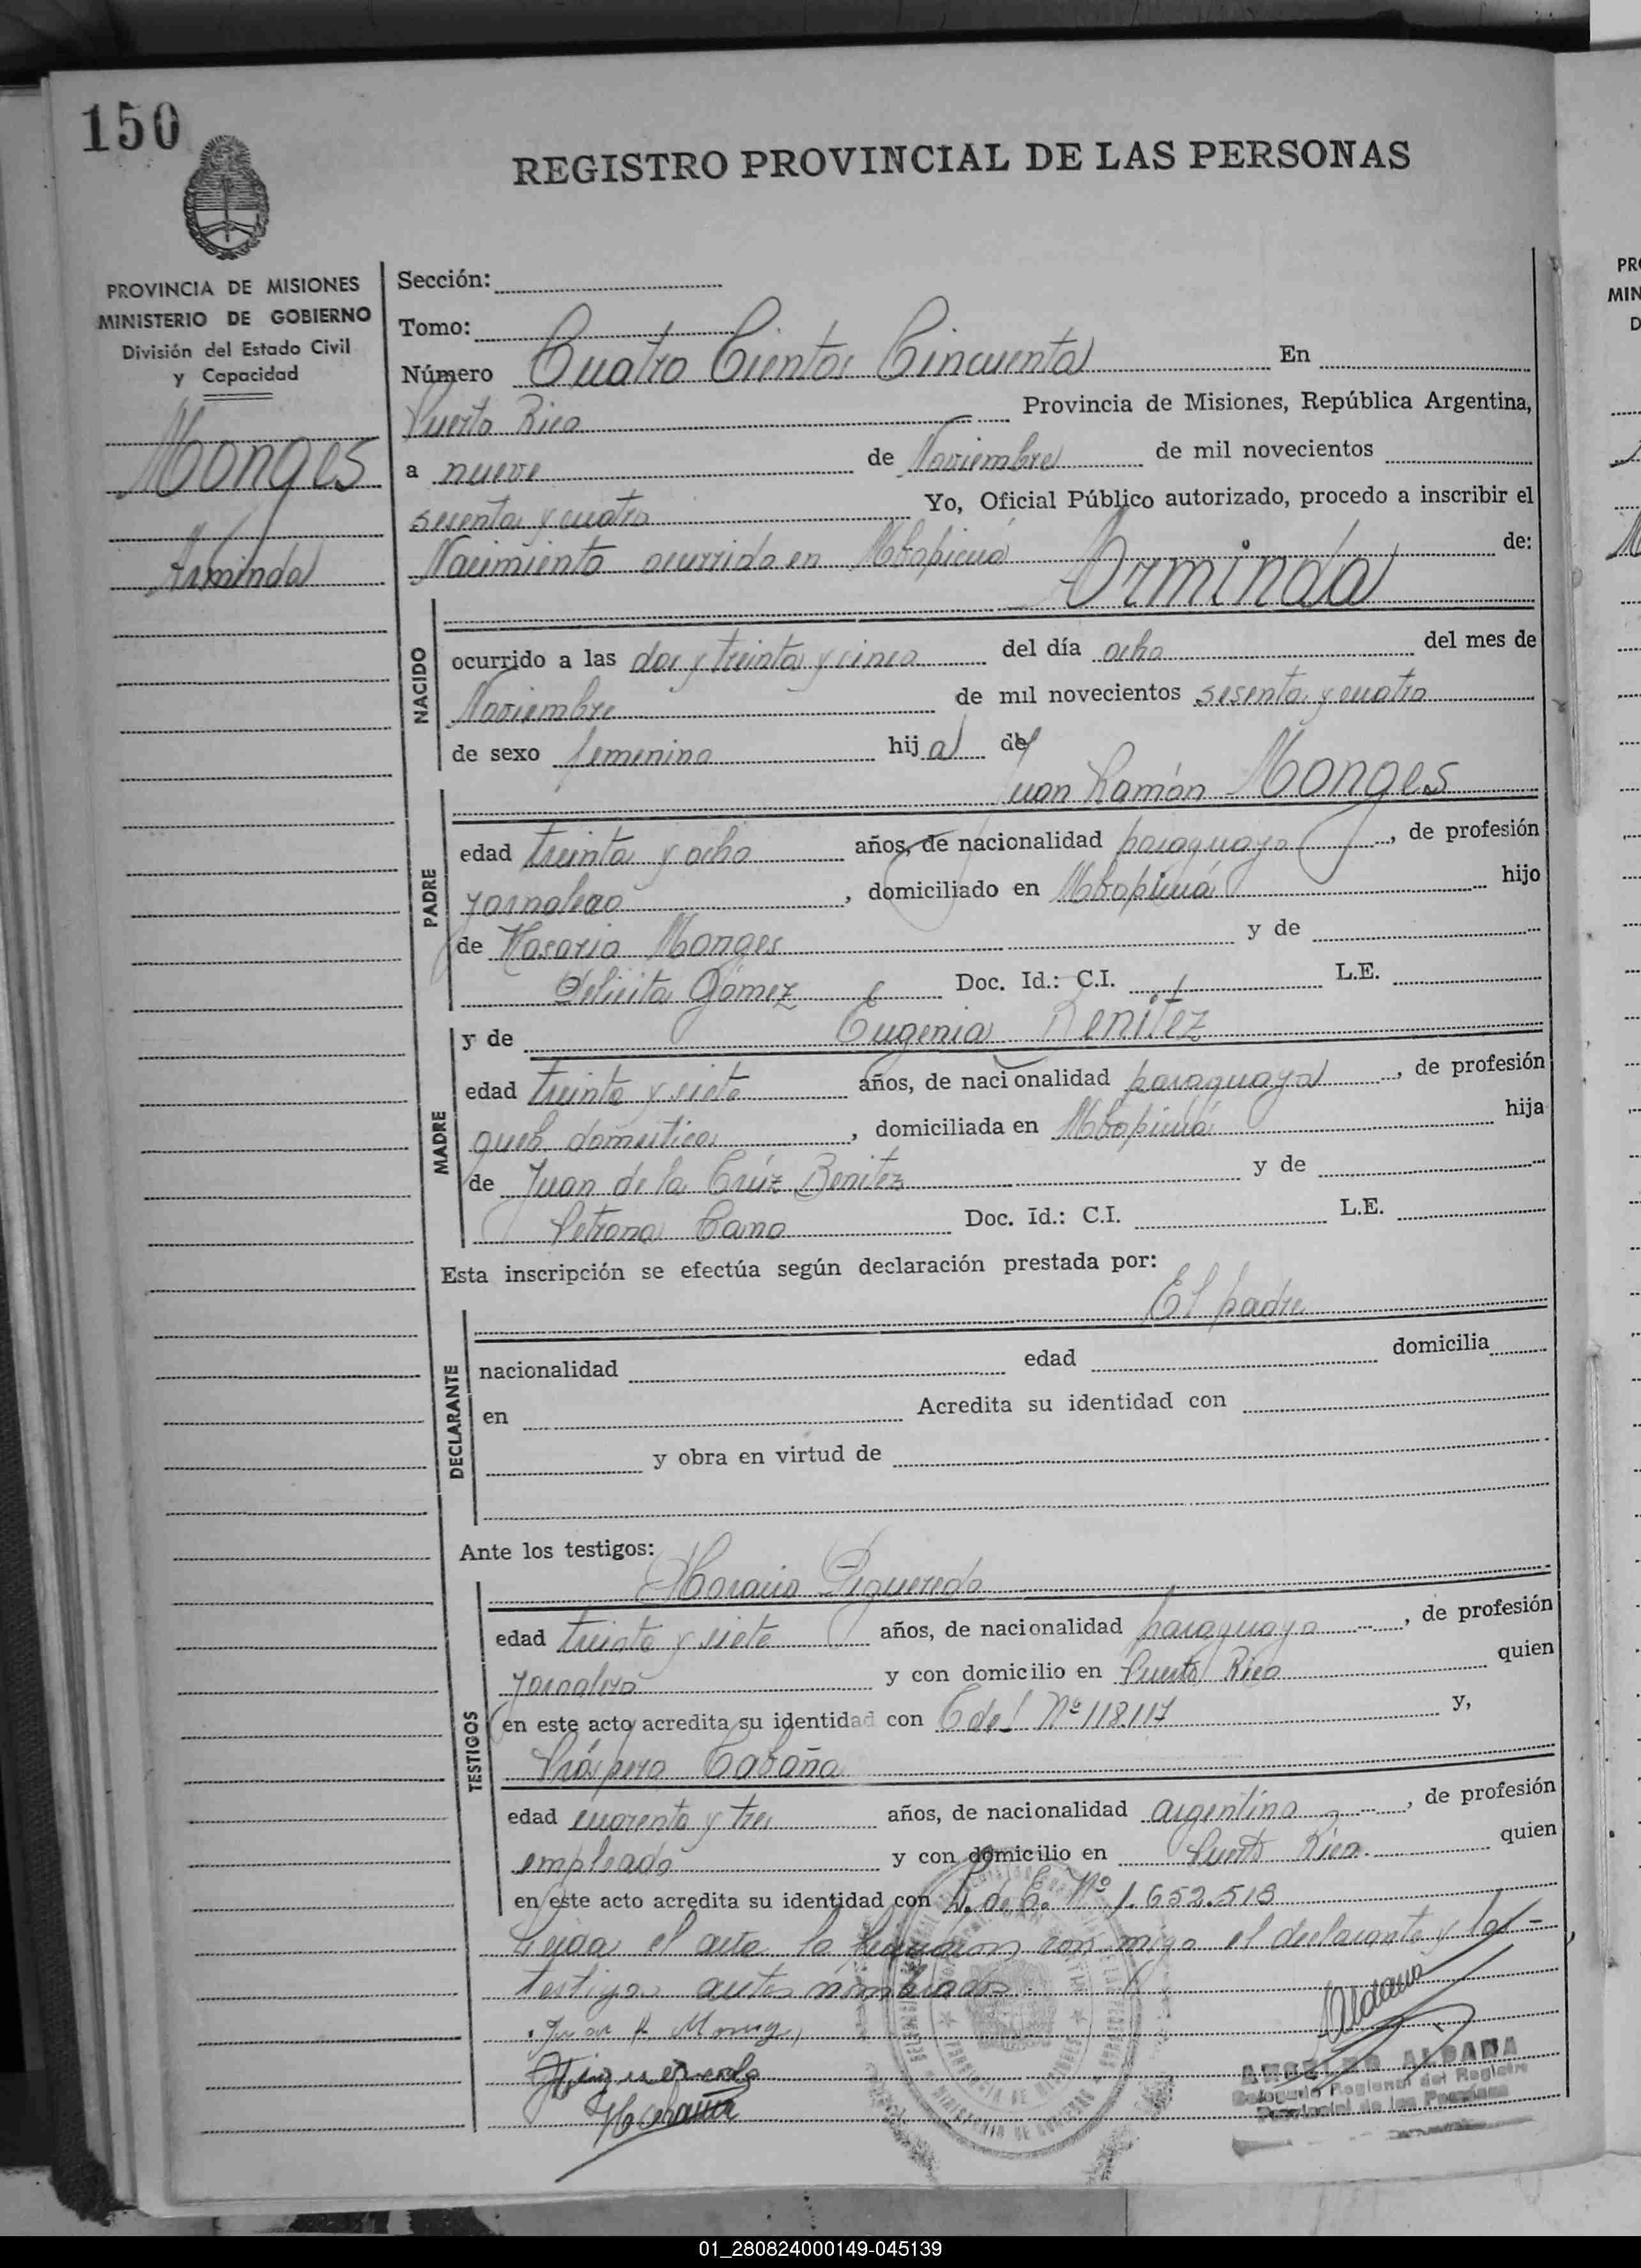 150
REGISTRO PROVINCIAL DE LAS PERSONAS
PROVINCIA DE MISIONES
MINISTERIO DE GOBIERNO
División del Estado Civil
y Capacidad
Monges
Arminda
Sección:
Tomo:
Número Cuatro Cientos Cincuenta En
Puerto Rico Provincia de Misiones, República Argentina,
a nueve de Noviembre de mil novecientos
sesenta y cuatro Yo, Oficial Público autorizado, procedo a inscribir el
Nacimiento ocurrido en Mbopicuá de:
Arminda
NACIDO
ocurrido a las dos y treinta y cinco del día ocho del mes de
Noviembre de mil novecientos sesenta y cuatro
de sexo femenino hija de
Juan Ramón Monges
PADRE
edad treinta y ocho años, de nacionalidad paraguayo, de profesión
jornalero, domiciliado en Mbopicuá hijo
de Rosario Monges y de
Felicita Gómez Doc. Id.: C.I. L.E.
y de Eugenia Benitez
MADRE
edad treinta y siete años, de nacionalidad paraguaya, de profesión
queh. domesticos, domiciliada en Mbopicuá hija
de Juan de la Crúz Benitez y de
Petrona Cano Doc. Id.: C.I. L.E.
Esta inscripción se efectúa según declaración prestada por:
El padre
DECLARANTE
nacionalidad edad domicilia
en Acredita su identidad con
y obra en virtud de
Ante los testigos:
Horacio Figueredo
TESTIGOS
edad treinta y siete años, de nacionalidad paraguayo, de profesión
jornalero y con domicilio en Puerto Rico quien
en este acto acredita su identidad con C de I Nº 118.117 y,
Próspero Cabaña
edad cuarenta y tres años, de nacionalidad argentino, de profesión
empleado y con domicilio en Puerto Rico quien
en este acto acredita su identidad con L. de E. Nº 1.652.518
Leida el acta la firmaron con migo el declarante y los
testigos antes nombrados
Juan R Monges
Figueredo
Aldana
ANSELMO ALDANA
Delegado Regional del Registro
Provincial de las Personas
PR
MIN
D
01_280824000149-045139